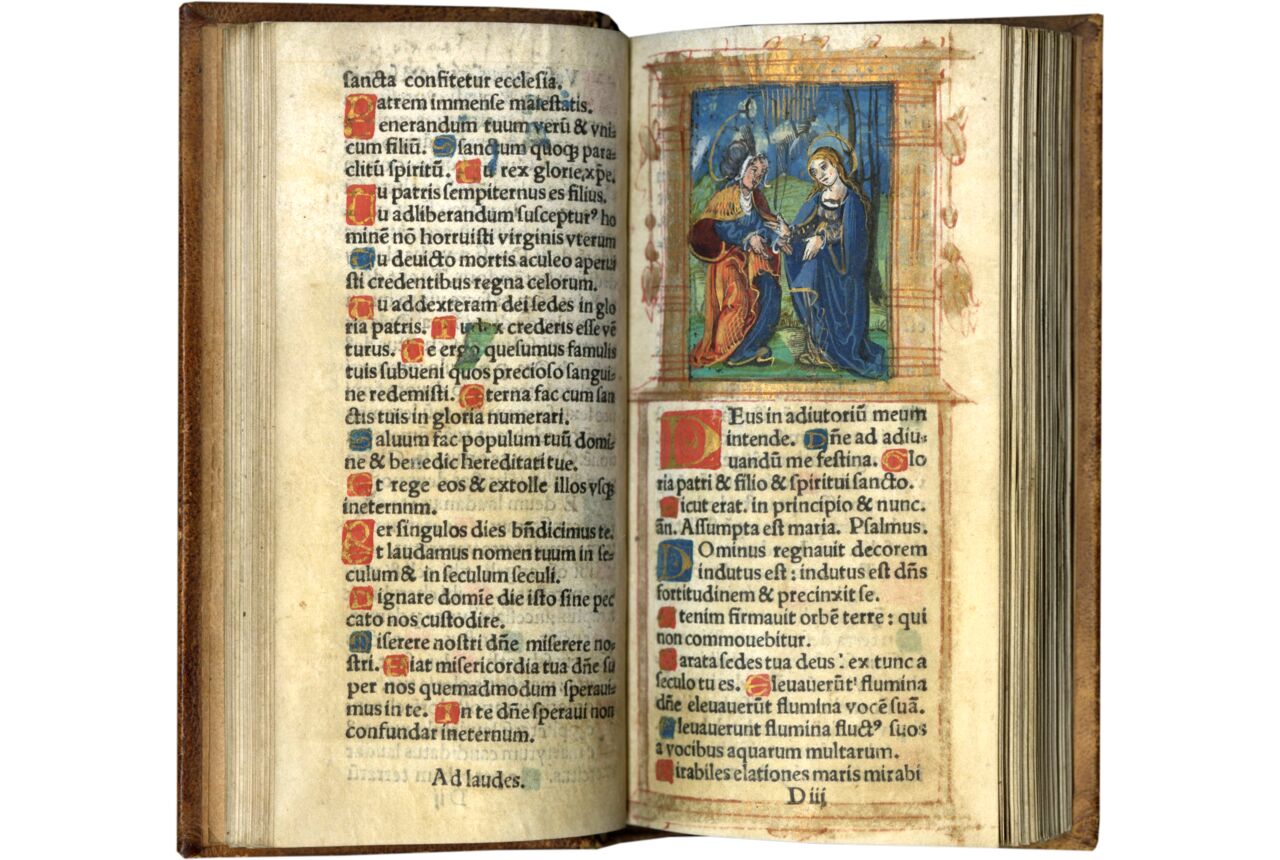 ſancta confitetur eccleſia.
Patrem immenſe maieſtatis.
Uenerandum tuum verū & vni-
cum filiū. Sſanctum quoqꝫ para-
clitū ſpiritū. Tu rex glorie,xp̄e.
Tu patris ſempiternus es filius.
Tu adliberandum ſuſcepturꝰ ho
minē nō horruiſti virginis vterum
Tu deuicto mortis aculeo aperui
ſti credentibus regna celorum.
Tu addexteram dei ſedes in glo
ria patris. Iudex crederis eſſe vē
turus. Te ergo queſumus famulis
tuis ſubueni quos precioſo ſangui-
ne redemiſti. Eterna fac cum ſan
ctis tuis in gloria numerari.
Saluum fac populum tuū domi-
ne & benedic hereditati tue.
Et rege eos & extolle illos vſqꝫ
ineternnm.
Per ſingulos dies bn̄dicimus te.
Et laudamus nomen tuum in ſe-
culum & in ſeculum ſeculi.
Dignare domīe die iſto ſine pec
cato nos cuſtodire.
Miſerere noſtri dn̄e miſerere no-
ſtri. Fiat miſericordia tua dn̄e ſu
per nos quemadmodum ſperaui-
mus in te. In te dn̄e ſperaui non
confundar ineternum.
Ad laudes.
DEus in adiutoriū meum
intende. Dn̄e ad adiu-
uandū me feſtina. Glo
ria patri & filio & ſpiritui ſancto.
Sicut erat. in principio & nunc.
an̄. Aſſumpta eſt maria. Pſalmus.
DOminus reghauit decorem
indutus eſt : indutus eſt dn̄s
fortitudinem & precinxit ſe.
Etenim firmauit orbē terre : qui
non commouebitur.
Parata ſedes tua deus : ex tunc a
ſeculo tu es. Eleuauerūt flumina
dn̄e eleuauerūt flumina vocē ſuā.
Eleuauerunt flumina fluctꝰ ſuos
a vocibus aquarum multarum.
Mirabiles elationes maris mirabi
D iij